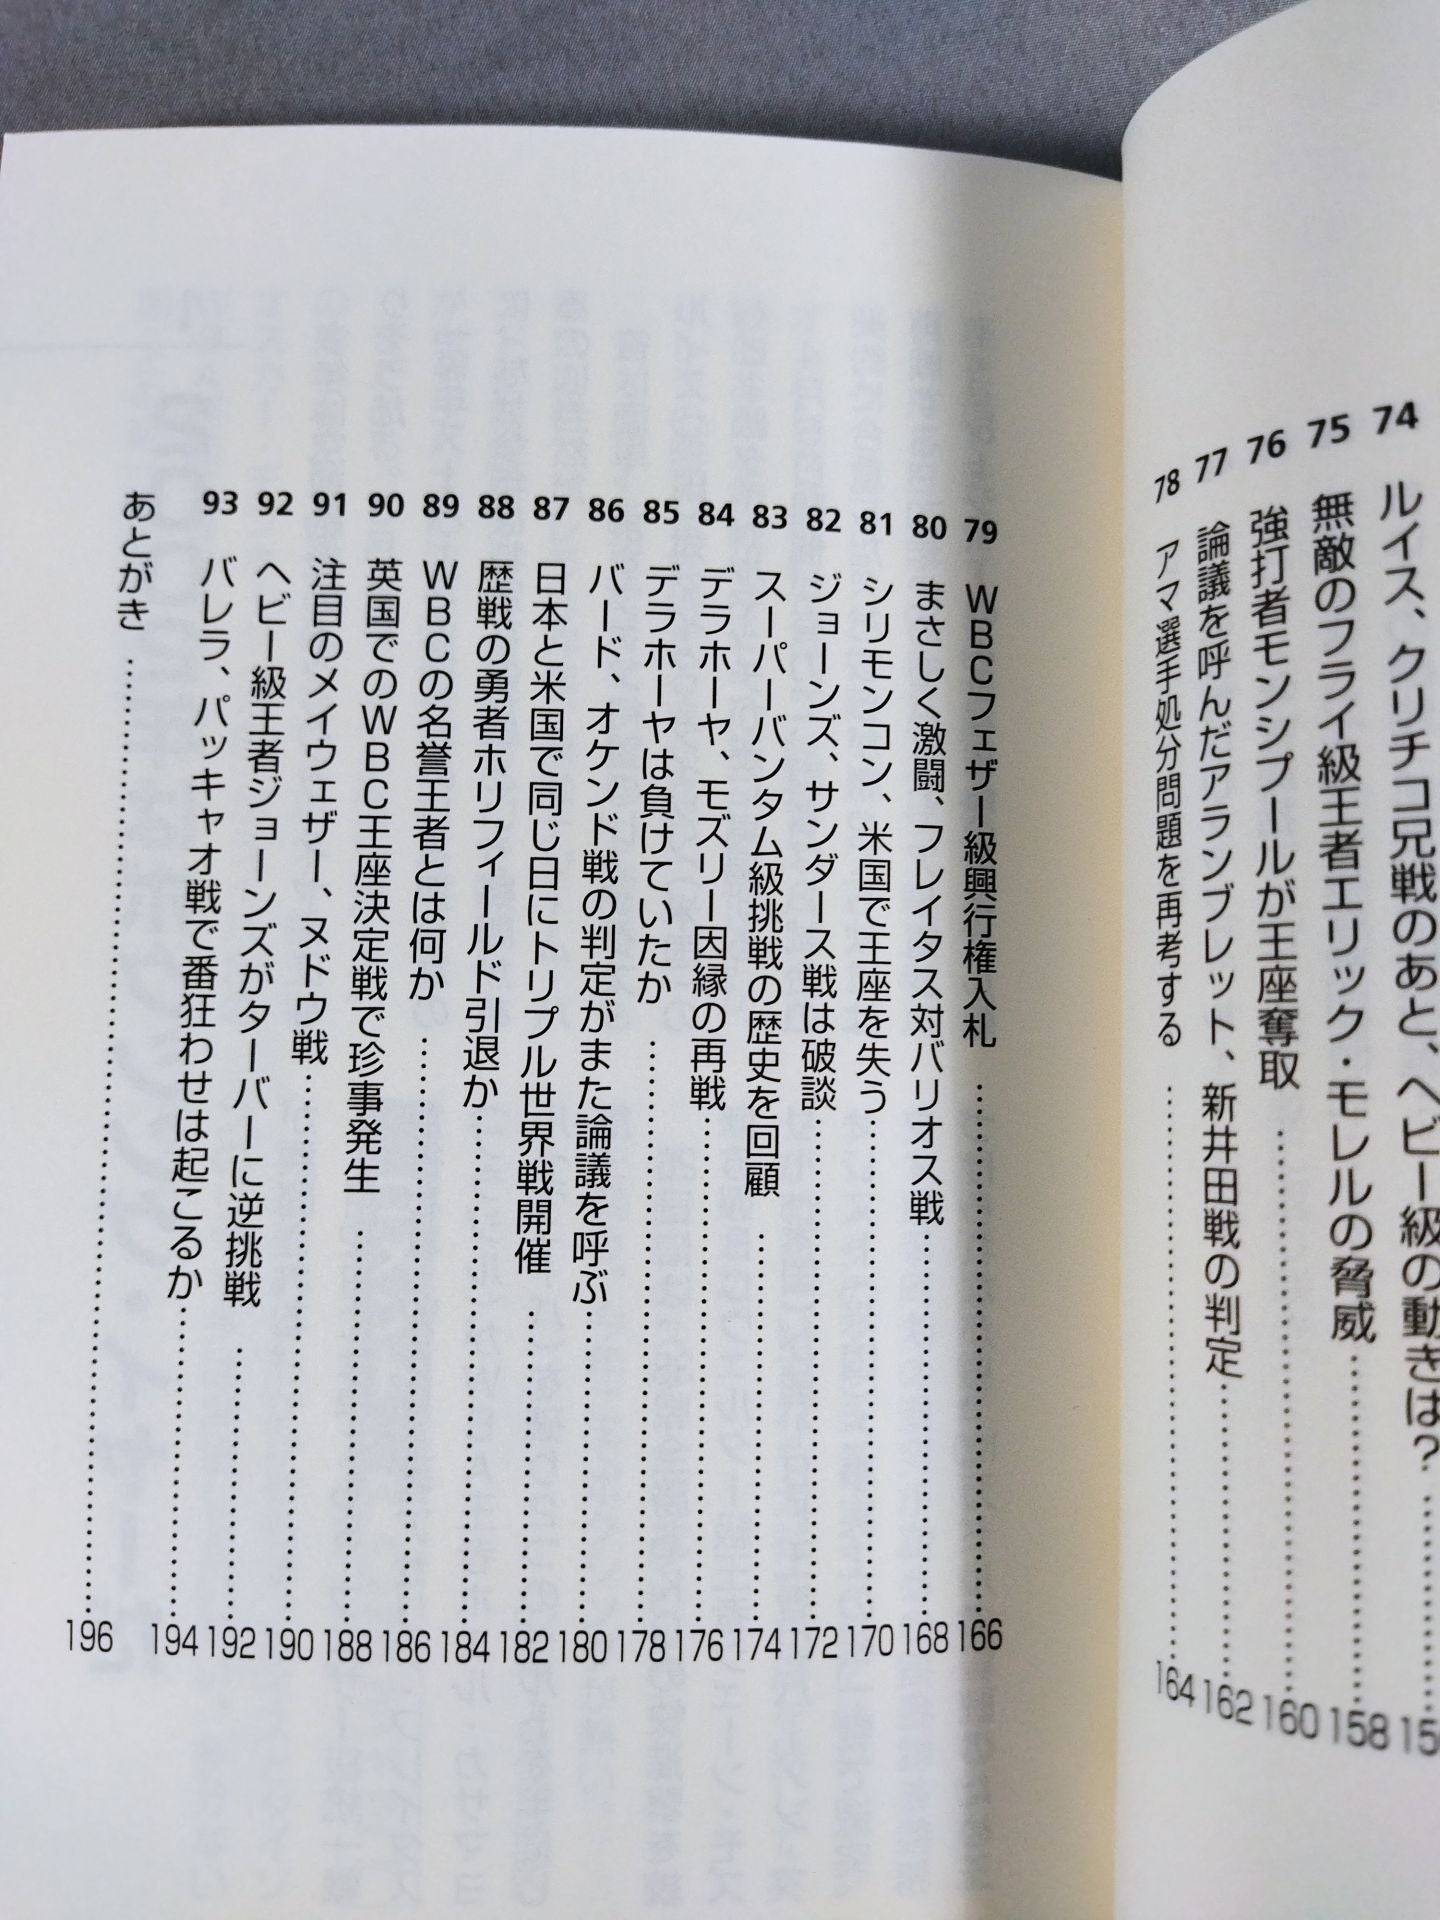 74 ルイス、クリチコ兄戦のあと、ヘビー級の動きは?
75 無敵のフライ級王者エリック・モレルの脅威 158
76 強打者モンシプールが王座奪取 160
77 論議を呼んだアランブレット、新井田戦の判定 162
78 アマ選手処分問題を再考する 164
79 WBCフェザー級興行権入札 166
80 まさしく激闘、フレイタス対バリオス戦 168
81 シリモンコン、米国で王座を失う 170
82 ジョーンズ、サンダース戦は破談 172
83 スーパーバンタム級挑戦の歴史を回顧 174
84 デラホーヤ、モズリー因縁の再戦 176
85 デラホーヤは負けていたか 178
86 バード、オケンド戦の判定がまた論議を呼ぶ 180
87 日本と米国で同じ日にトリプル世界戦開催 182
88 歴戦の勇者ホリフィールド引退か 184
89 WBCの名誉王者とは何か 186
90 英国でのWBC王座決定戦で珍事発生 188
91 注目のメイウェザー、ヌドウ戦 190
92 ヘビー級王者ジョーンズがターバーに逆挑戦 192
93 バレラ、パッキャオ戦で番狂わせは起こるか 194
あとがき 196